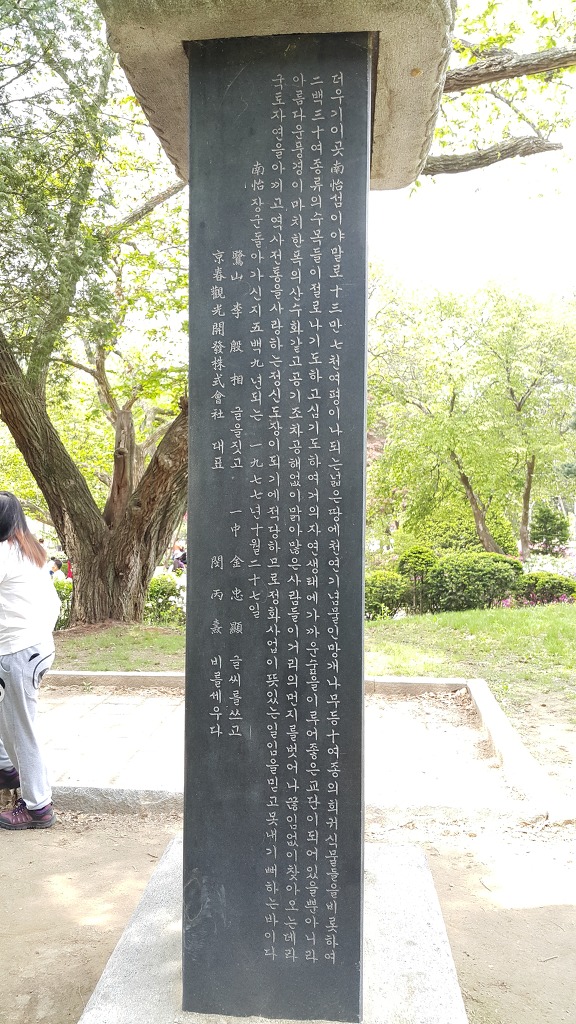 더우기이곳 南怡섬이야말로 十三만 七천여평이나되는넓은땅에천연기념물인망개나무등十여종의희귀식물들을비롯하여
二백三十여종류의수목들이절로나기도하고심기도하여거의자연생태에가까운숲을이루어좋은교단이되어있을뿐아니라
아름다운풍경이마치한폭의산수화같고공기조차공해없이맑아많은사람들이거리의먼지를벗어나끊임없이찾아오는데라
국토자연을아끼고역사전통을사랑하는정신도장이되기에적당하므로정화사업이뜻있는일임을믿고못내기뻐하는바이다
南怡장군돌아가신지五백九년되는 一九七七년十월二十七일
鷺山 李殷相 글을짓고 一中 金忠顯 글씨를쓰고
京春觀光開發株式會社 대표 閔丙燾 비를세우다